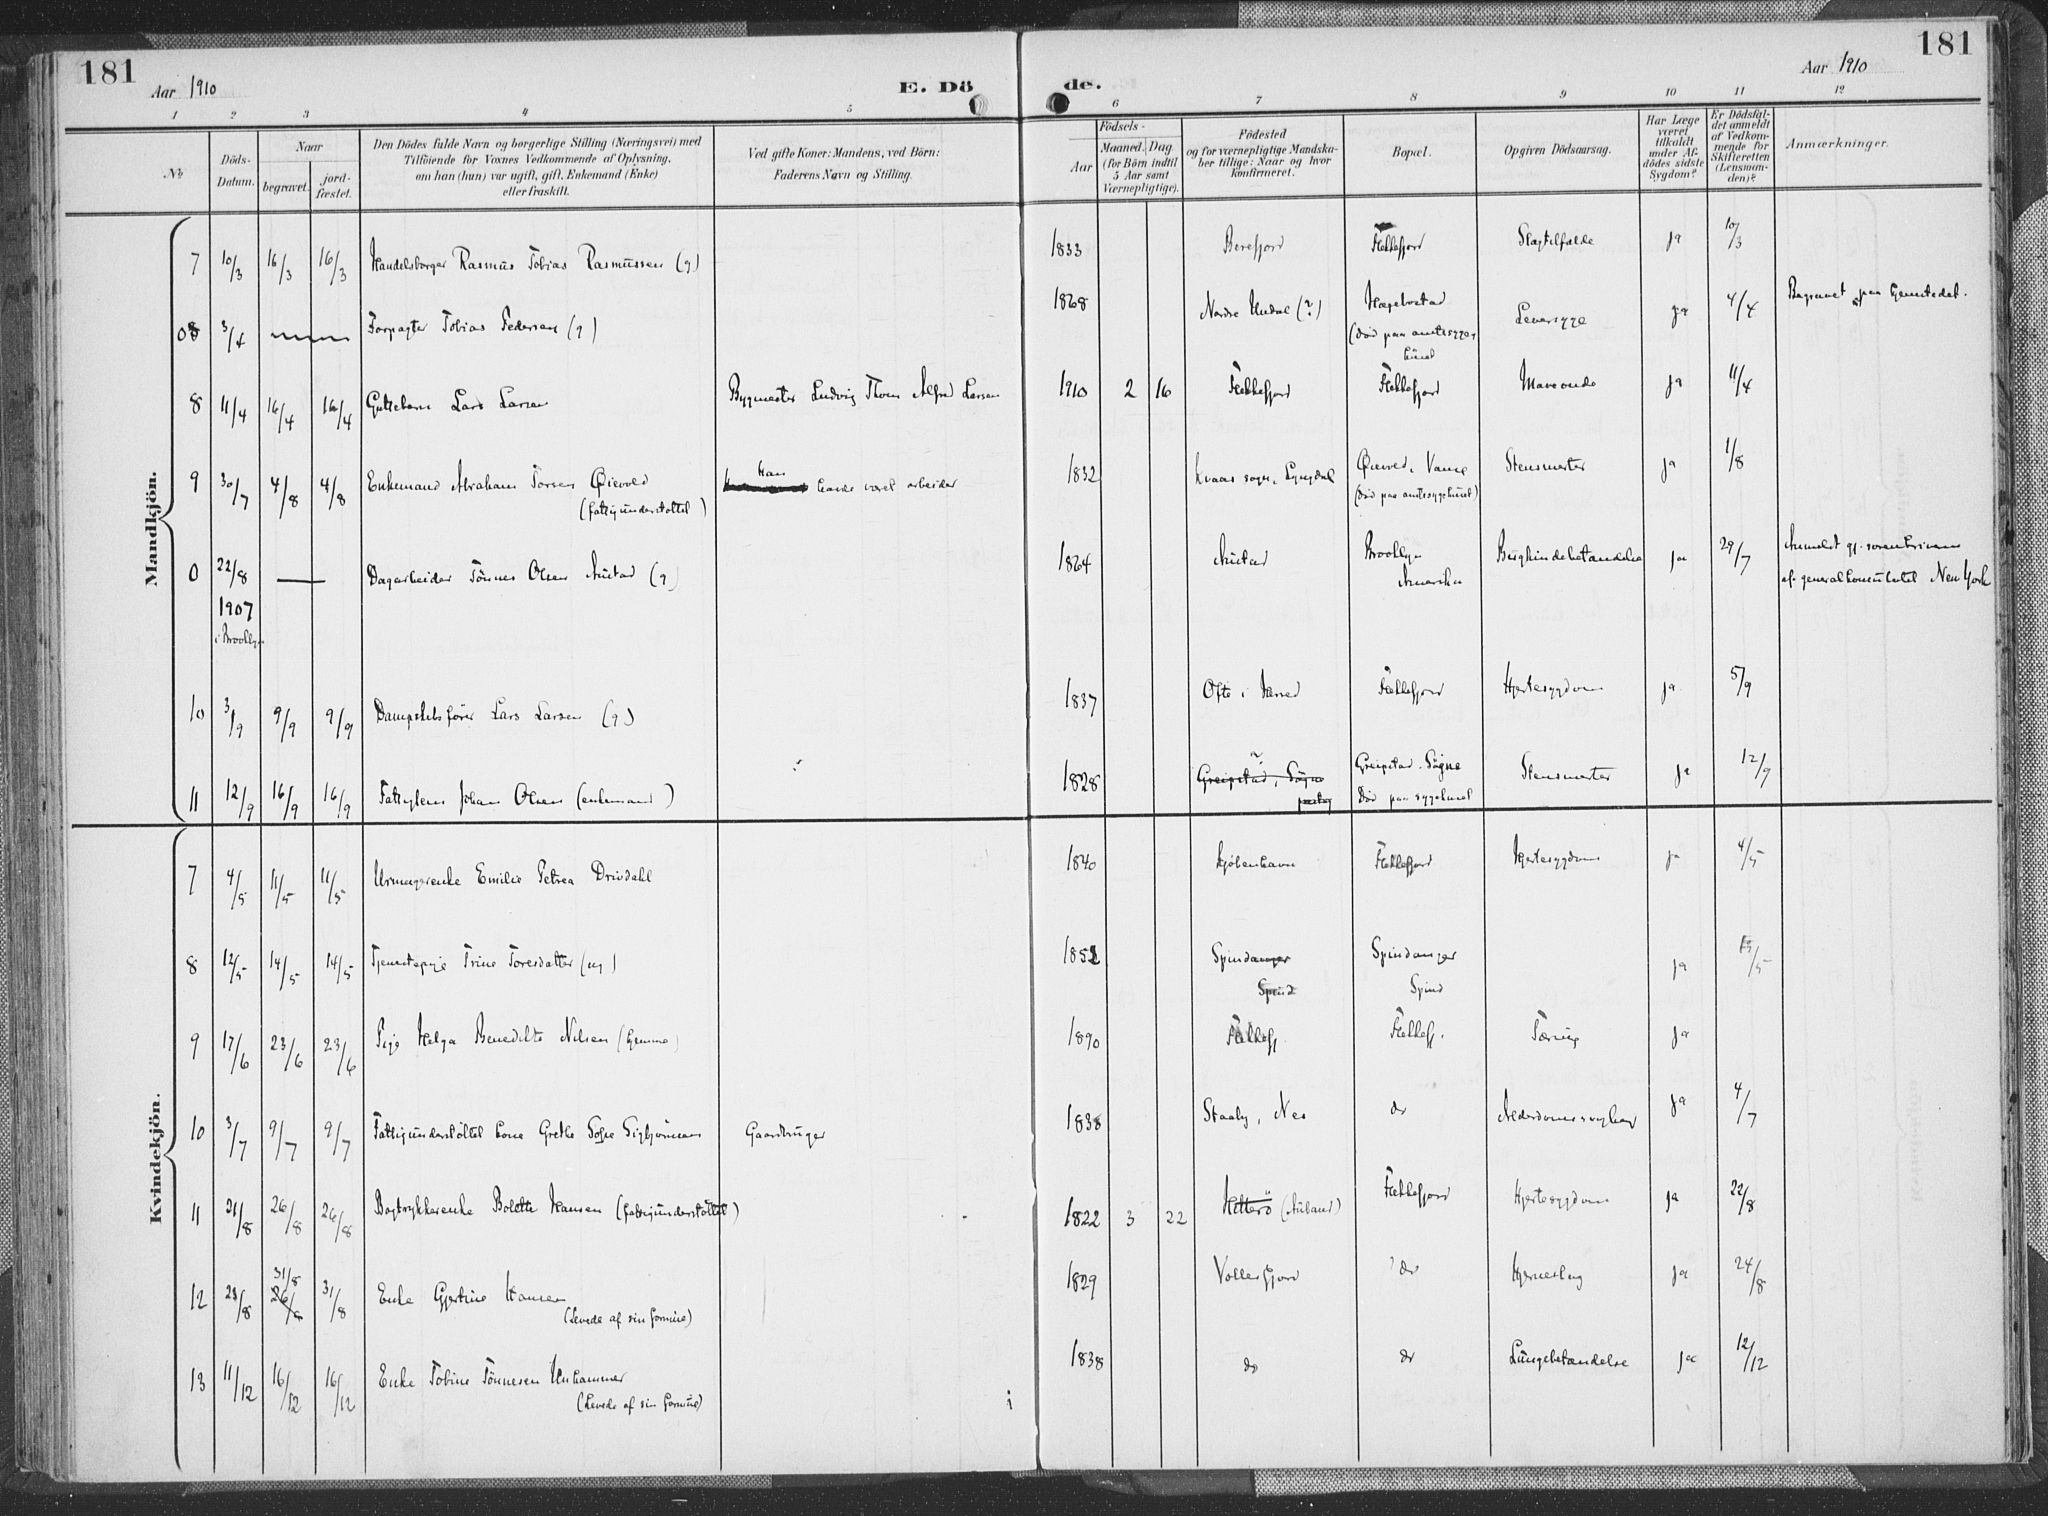 181
Aar 1910
E. Dö
de.
Aar 1910
181
1 2 3 4 5 6 7 8 9 10 11 12
No
Döds-Datum.
Naar
begravet.
jord-fæstet.
Den Dödes fulde Navn og borgerlige Stilling (Næringsvei) med
Tilföiende for Voxnes Vedkommende af Oplysning,
om han (hun) var ugift, gift, Enkemand (Enke)
eller fraskilt.
Ved gifte Koner: Mandens, ved Börn:
Faderens Navn og Stilling.
Födsels-
Aar
Maaned. Dag.
(for Börn indtil
5 Aar samt
Værnepligtige).
Födested
og for værnepligtige Mandska-
ber tillige: Naar og hvor
konfirmeret.
Bopæl.
Opgiven Dödsaarsag.
Har Læge
været
tilkaldt
under Af-
dödes sidste
Sygdom?
Er Dödsfal-
det anmeldt
af Vedkom-
mende for
Skifteretten
(Lensman-
den)?
Anmærkninger.
Mandkjön.
7 10/3 16/3 16/3 Handelsborger Rasmus Tobias Rasmussen (g) 1833 Flekkefjord Slagtilfælde ja 10/3
0 3/4 Forpagter Tobias Pedersen (g) 1868 Nordre Undal (?) Hægebostad
(død paa amtssyge-
huset
Leversyge ja 4/4 Begravet paa hjemstedet.
8 11/4 16/4 16/4 Guttebarn Lars Larsen Bygmester Ludvig Thom Alfred Larsen 1910 2 16 Flekkefjord Flekkefjord Maveonde ja 11/4
9 30/7 4/8 4/8 Enkemand Abraham Torsen Øievold
(fattigunderstøttet)
Han
havde været arbeider 1832 Kvaas sogn, Lyngdal Øievold, Vanse
(død paa amtssygehuset)
Stensmerter ja 1/8
0 22/8
1907
i Brooklyn
Dagarbeider Tønnes Olsen Austad (g) 1864 Austad Brooklyn
Amerika
Brysthindebetændelse ja 29/7 Anmeldt gj. sorenskriveren
af generalkonsulatet New York
10 3/9 9/9 9/9 Dampskibsfører Lars Larsen (g) 1837 Ofte i Herred Flekkefjord Hjertesygdom ja 5/9
11 12/9 16/9 16/9 Fattiglem Johan Olsen (enkemand) 1828 ?
Greipstad, Søgne
Greipstad. Søgne
Død paa sygehuset
Stensmerter ja 12/9
Kvindekjön.
7 4/5 11/5 11/5 Urmagerenke Emilie Petrea Drivdahl 1840 Kjøbenhavn Flekkefjord Hjertesygdom ja 4/5
8 12/5 14/5 14/5 Tjenestepige Trine Toresdatter (ug) 1852 Spindanger
Spind
Spindanger
Spind
ja 13/5
9 17/6 23/6 23/6 Pige Helga Benedikte Nilsen (hjemme) 1890 Flekkefj. Flekkefj. Tæring ja
10 3/7 9/7 9/7 Fattigunderstøttet kone Grethe Sofie Sigbjørnsen Gaardbruger 1838 Staaly, Nes do Alderdomssvaghed ja 4/7
11 21/8 26/8 26/8 Bogtrykkerenke Bolette Hansen (fattigunderstøttet) 1822 3 22 Hitterø (Auland) Flekkefjord Hjertesygdom ja 22/8
12 23/8 31/8
26/8
31/8 Enke Gjertine Hansen
(Levede af sin formue)
1829 Vollesfjord do Hjerneslag ja 24/8
13 11/12 16/12 16/12 Enke Tobine Tønnesen Unhammer
(Levede af sin formue)
1838 do do Lungebetændelse ja 12/12